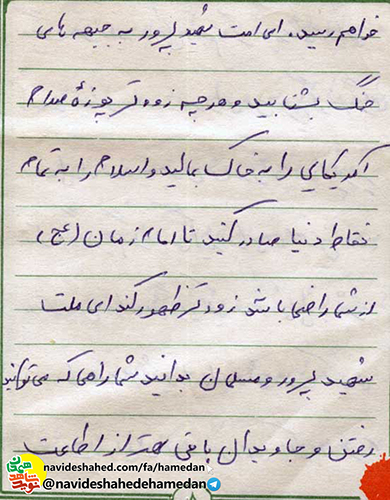 خواهم رسید. ای امت شهید پرور به جبهه های
جنگ بشتابید و هر چه زودتر پوزهٔ صدام
آمریکایی را به خاک بمالید و اسلام را به تمام
نقاط دنیا صادر کنید تا امام زمان (عج)
از شما راضی باشد زودتر ظهور کند ای ملت
شهید پرور و مسلمان بدانید شما راهی که می‌توانید
رفتن و جاویدان باقی بهتر از اطاعت
navideshahed.com/fa/hamedan
@navideshahedehamedan